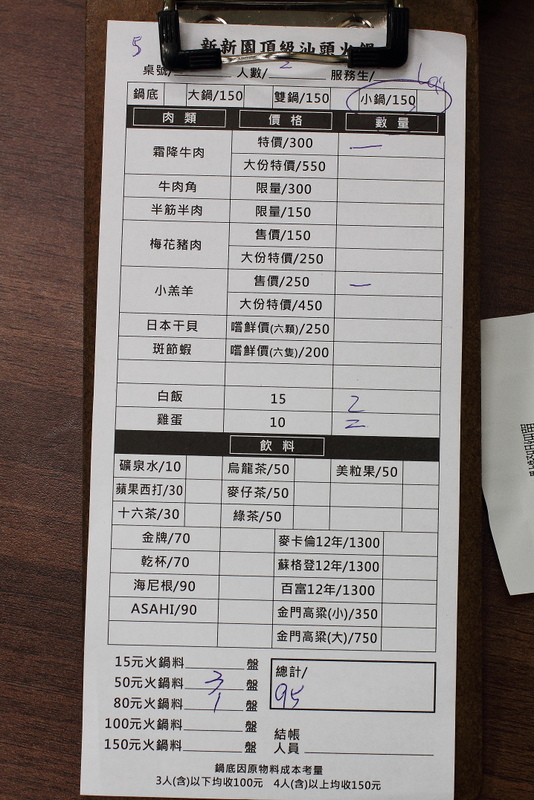 新新園頂級汕頭火鍋
5
桌號/ 人數/ 2 服務生/
鍋底 大鍋/150 雙鍋/150 小鍋/150
肉類 價格 數量
霜降牛肉 特價/300 一
大份特價/550
牛肉角 限量/300
半筋半肉 限量/150
梅花豬肉 售價/150
大份特價/250
小羔羊 售價/250 一
大份特價/450
日本干貝 嚐鮮價(六顆)/250
斑節蝦 嚐鮮價(六隻)/200
白飯 15 2
雞蛋 10 二
飲料
礦泉水/10 烏龍茶/50 美粒果/50
蘋果西打/30 麥仔茶/50
十六茶/30 綠茶/50
金牌/70 麥卡倫12年/1300
乾杯/70 蘇格登12年/1300
海尼根/90 百富12年/1300
ASAHI/90 金門高粱(小)/350
金門高粱(大)/750
15元火鍋料 盤
50元火鍋料 3 盤
80元火鍋料 1 盤
100元火鍋料 盤
150元火鍋料 盤
總計/
95
結帳
人員
鍋底因原物料成本考量
3人(含)以下均收100元 4人(含)以上均收150元